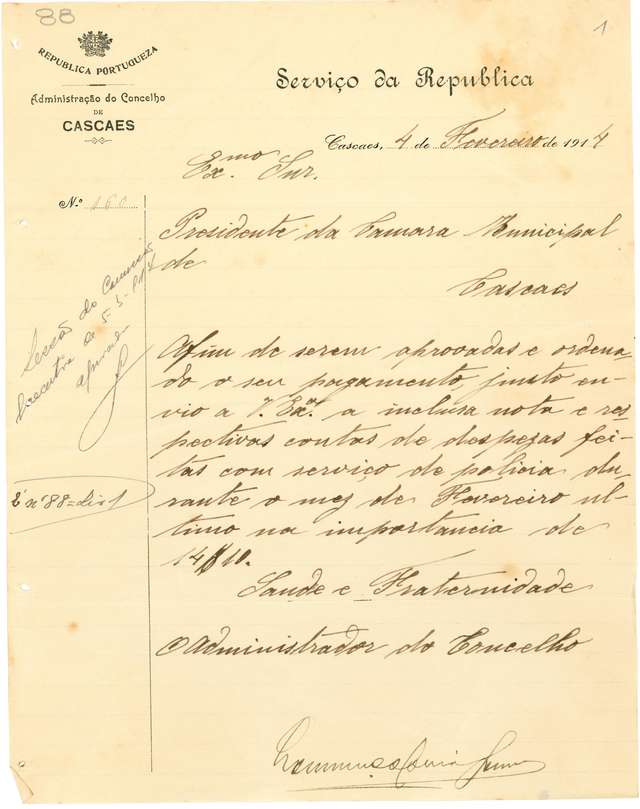 88
1
REPUBLICA PORTUGUEZA
Administração do Concelho
DE
CASCAES
Serviço da Republica
Cascaes, 4 de Fevereiro de 1914
Ex.mo Snr.
N.º 160
Presidente da Camara Municipal
de
Cascaes
Afim de serem aprovadas e ordena
do o seu pagamento, junto en
vio a V. Exa. a inclusa nota e res
pectivas contas de despezas fei
tas com serviço de policia du
rante o mez de Fevereiro ul
timo na importancia de
14$10.
Saude e Fraternidade
O Administrador do Concelho
de 5-3-914
nº 88